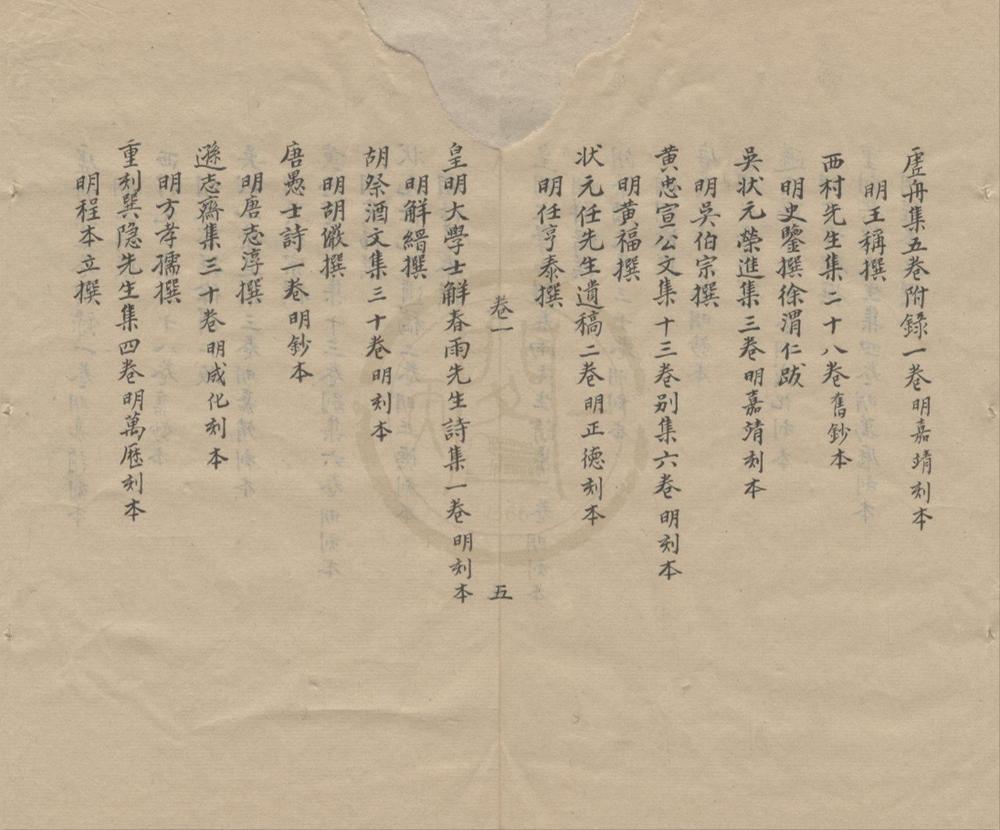 虗舟集五卷附錄一卷明嘉靖刻本
明王稱撰
西村先生集二十八卷舊鈔本
明史鑒撰徐渭仁跋
吳狀元榮進集三卷明嘉靖刻本
明吳伯宗撰
黃忠宣公文集十三卷别集六卷明刻本
明黃福撰
状元任先生遺稿二卷明正德刻本
明任亨泰撰
卷一
五
皇明大學士觧春雨先生詩集一卷明刻本
明觧縉撰
胡祭酒文集三十卷明刻本
明胡儼撰
唐愚士詩一卷明鈔本
明唐志淳撰
遜志齋集三十卷明成化刻本
明方孝孺撰
重刻巽隐先生集四卷明萬歷刻本
明程本立撰